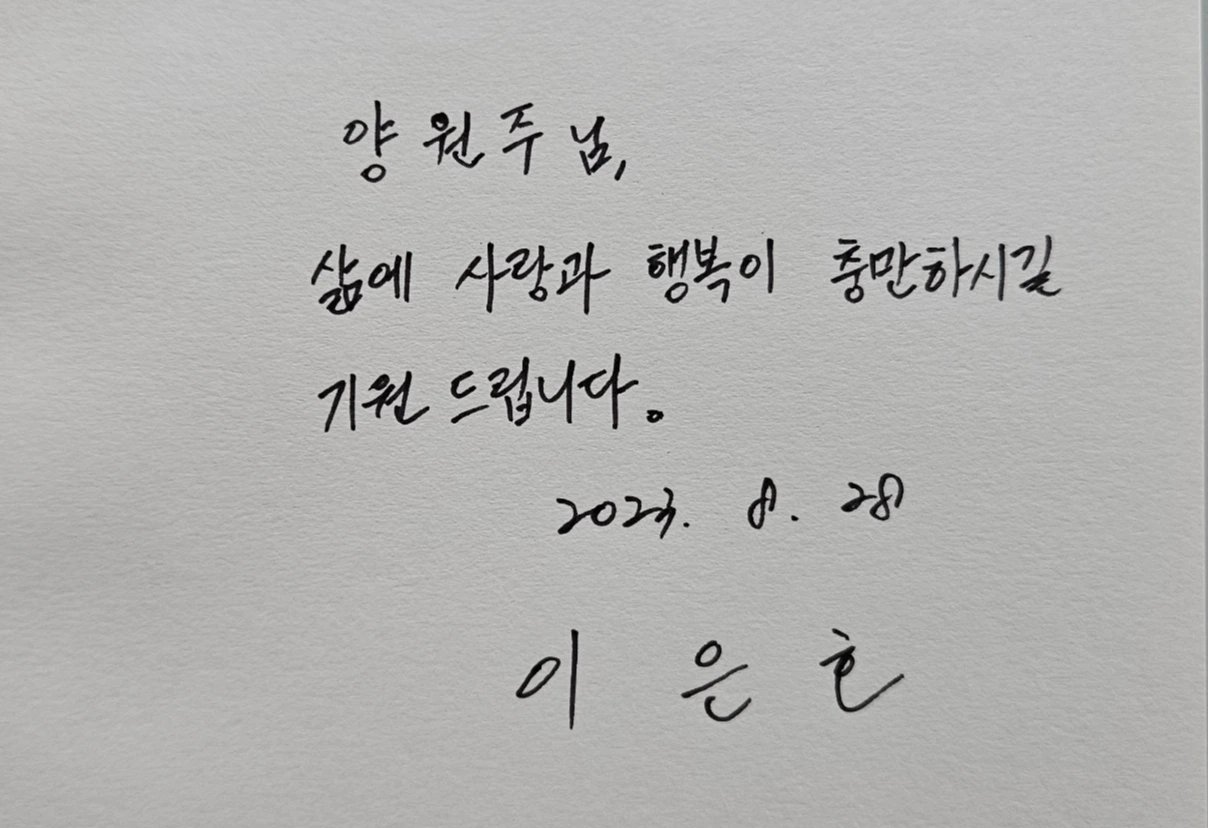 양원주님,
삶에 사랑과 행복이 충만하시길
기원 드립니다.
2023. 8. 28
이 은 호